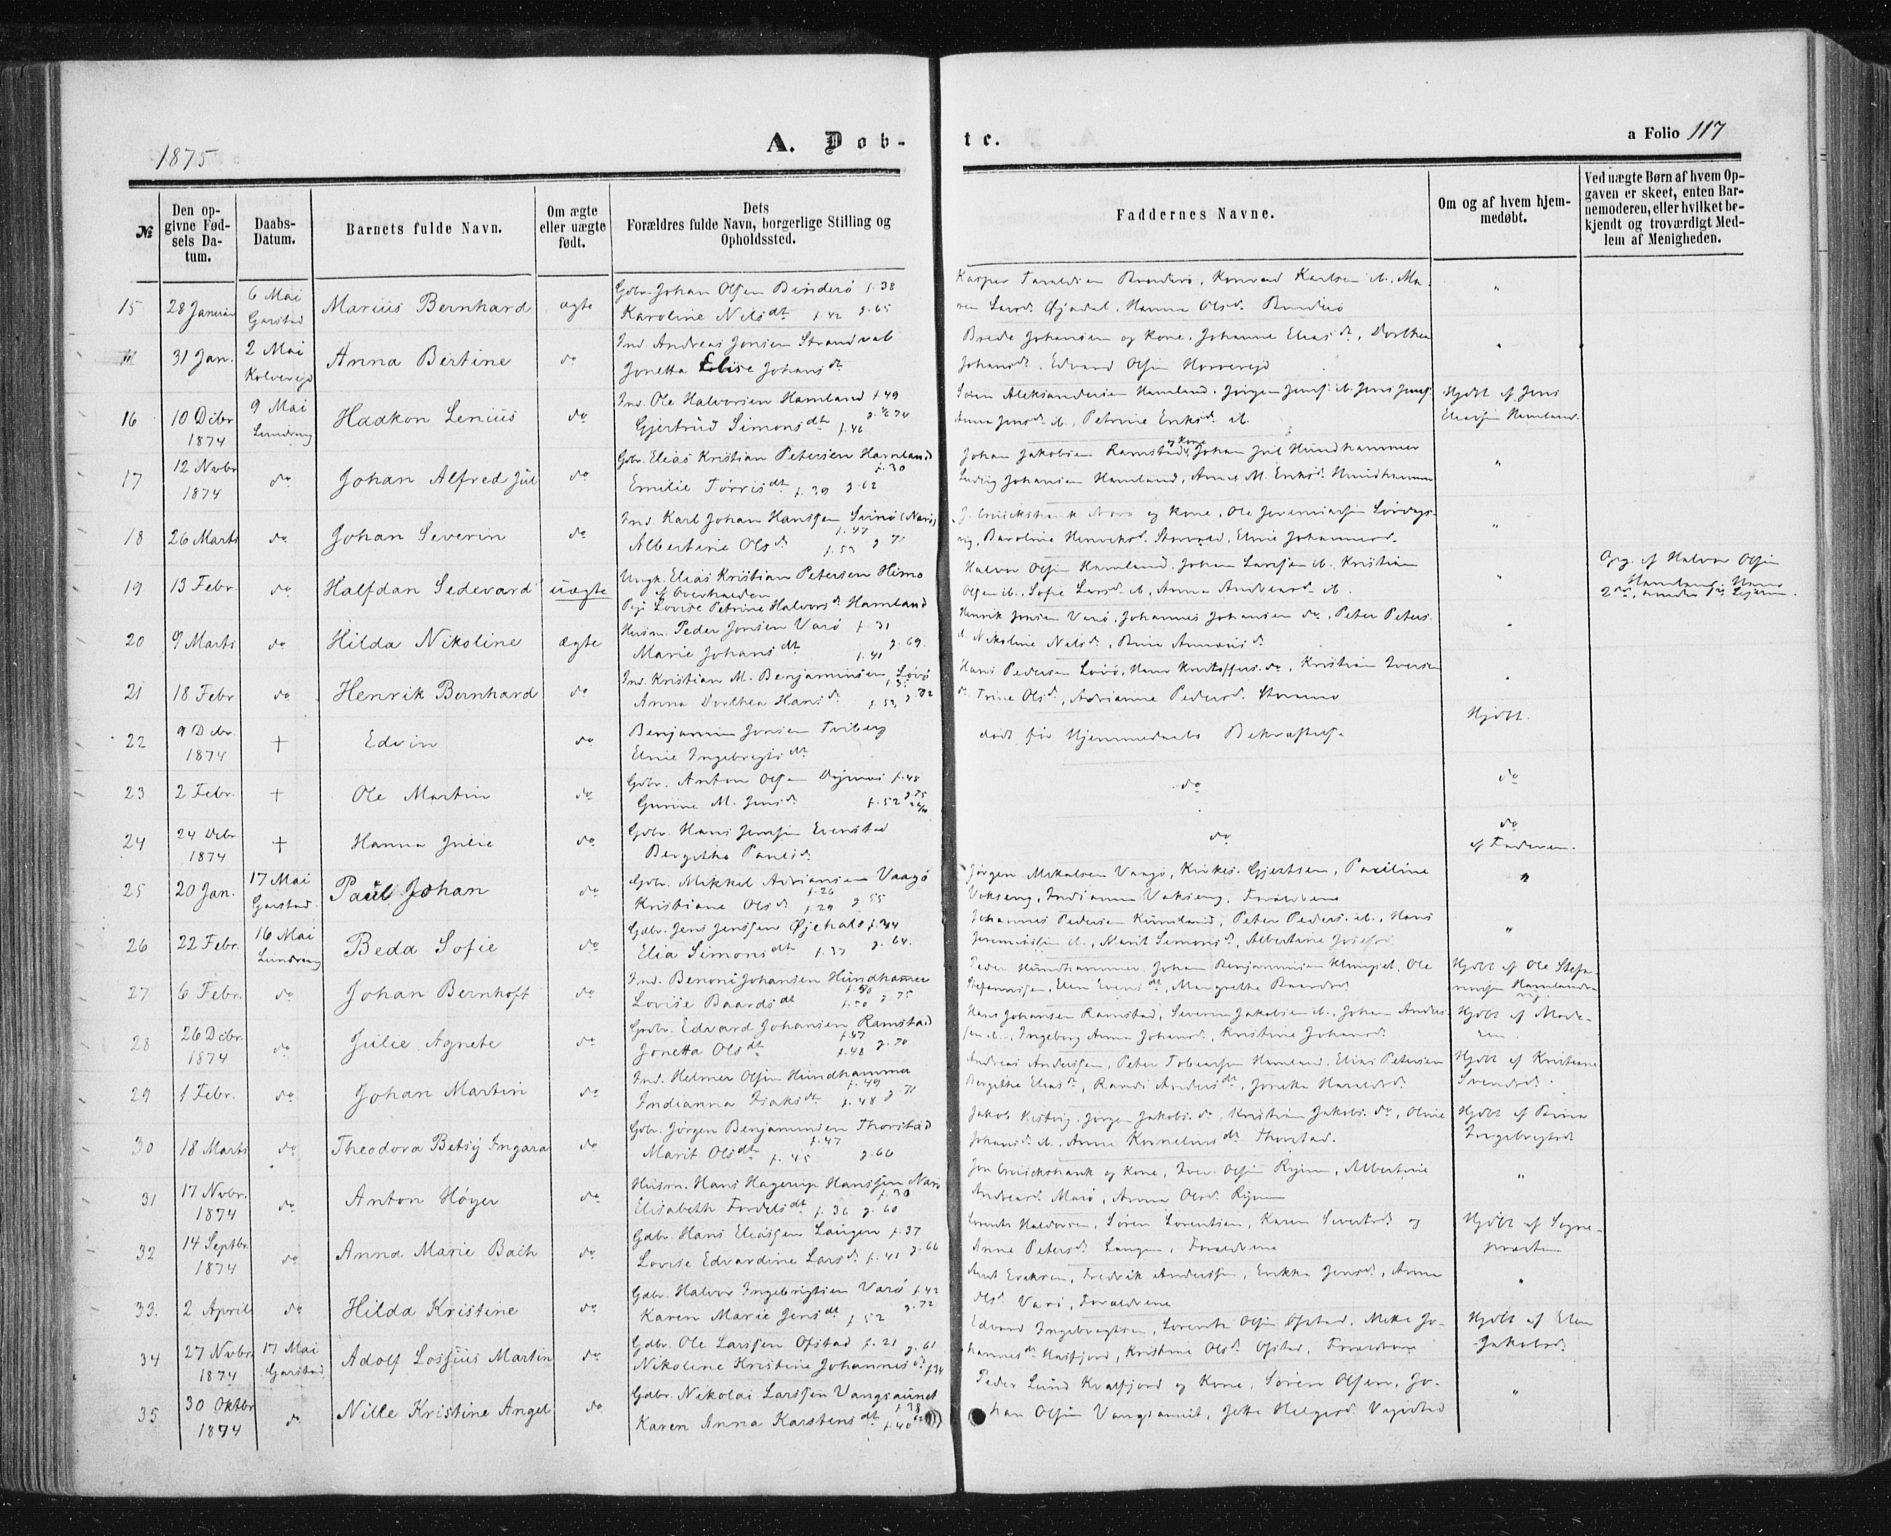 1875
A. Døb-
te.
a Folio 117
№
Den opgivne Fødsels Datum.
Daabs-Datum.
Barnets fulde Navn.
Om ægte eller uægte født.
Dets Forældres fulde Navn, borgerlige Stilling og Opholdssted.
Faddernes Navne.
Om og af hvem hjemmedøbt.
Ved uægte Børn af hvem Opgaven er skeet, enten Barnemoderen, eller hvilket bekjendt og troværdigt Medlem af Menigheden.
15 28 Januar 6 Mai Garstad Marius Bernhard ægte Gdbr. Johan Olsen Binderø f. 38
Karoline Nilsdt f. 42 g. 65
31 Jan. 2 Mai Kolvereid Anna Bertine do Ind. Andreas Jonsen Strandval
Jonetta Elise Johansdt
Johansd. Edvard Olsen Horvereid
16 10 Dcbr 1874 9 Mai Lundring Haakon Lenius do Ind. Ole Halvorsen Hamland f. 49
Gjertrud Simonsdt f. 46
Søren Aleksandersen Hamland, Jørgen Jens. ib. Jens Jens.
Anna Jensd. ib, Petrine Eriksd. ib.
Hjdbt af Jens
Eliassen Hamland.
17 12 Novbr 1874 do Johan Alfred Jul do Gdbr. Elias Kristian Petersen Hamland f. 30
Emilie Tørrisdt f. 39 g. 62
Johan Jakobsen Ramstad og Kone, Johan Jul Hundhammer
Ludvig Johansen Hamland, Anne M. Eriksd. Hundhammer
18 26 Marts do Johan Severin do Ind. Karl Johan Hanssen Svinø (Narø) f. 47
Albertine Olsd. f. 53 g. 71
19 13 Febr do Halfdan Sedevard uægte Ungk. Elias Kristian Petersen Himo
af Overhalden
Pige Lovise Petrine Halvorsd. Hamland
Halvor Olsen Hamland. Johan Larssen ib. Kristian
Olsen ib., Sofie Larsd. ib, Anna Andreasd. ib.
Opg. af Halvor Olsen
20 9 Marts do Hilda Nikoline ægte Husm. Peder Jonsen Varø f. 31
Marie Johansdt f. 41 g. 69.
Henrik Jonsen Varø, Johannes Johansen do, Peter Peters.
21 18 Febr do Henrik Bernhard do Ind. Kristian M. Benjaminsen, Løvø
Anna Dorthea Hansd. f. 53
Hans Pedersen Løvø, Kristian Iversen
do Trine Olsd., Adrianna Pedersd.
22 9 Dcbr. 1874 † Edvin do Benjamin Jonsen Tviberg
Elnie Ingebrigtsdt
død før Hjemmedaabs Bekræftelse
Hjdbt.
23 2 Febr. † Ole Martin do Gdbr. Anton Olsen Dypnæs f. 48
Gurine M. Jensd. f. 52 g. 75
do
do
24 24 Dcbr 1874 † Hanna Julie do Gdbr. Hans Jenssen Evenstad
Bergitha Paulsd.
do
do
af Faderen.
25 20 Jan. 17 Mai Garstad Paul Johan do Gdbr. Mikkal Adriansen Vaagø f. 26
Kristiane Olsd. f. 29 g. 55
Jørgen Mikalsen Vaagø, Gjertsen, Pauline
Vokseng, Indianna Vokseng, Forældrene
26 22 Febr. 16 Mai Lundring Beda Sofie do Gdbr. Jens Jenssen Øjehals f. 34
Elia Simonsdt f. 37 g. 64.
Johannes Pedersen Kumland, Peter Peders. ib., Hans
Jeremiassen ib., Marit Simonsd., Albertine Josefsd.
27 6 Febr. do Johan Bernhoft do Ind. Benoni Johansen Hundhamer
Lovise Baardsdt f. 50 g. 75
Peder Hundhammer, Johan Benjaminsen, Ole
Stefannssen, Elen Evensdt, Margrethe Baardsd.
Hjdbt af Ole Stefa-
28 26 Dcbr 1874 do Julie Agnete do Gdbr. Edvard Johansen Ramstad f. 47
Jonetta Olsdt f. 48 g. 70
Hans Johansen Ramstad, Severin Jakobsen ib., Johan Anders
sen ib., Ingeborg Anna Johansd., Kristine Johansd.
Hjdbt af Mode-
ren.
29 1 Febr. do Johan Martin do Ind. Helmer Olsen Hundhammer f. 49
Indianna Isaksdt f. 48 g. 71
Andreas Anderssen, Peter Tobiassen Hamland, Elias Petersen
Bergitha Eliasd., Randi Andersdt, Jonetta Haraldsd.
Hjdbt af Kristiane
Svendsd.
30 18 Marts do Theodora Betsy Ingara do Gdbr. Jørgen Benjaminsen Thorstad f. 47
Marit Olsdt f. 45 g. 66
Jakob Kistvig, Jørgen Jakobs. do, Kristian Jakobs. do, Oline
Johansd. ib., Anne Kornelius dt Thorstad.
Hjdbt af
Ingebrigtsd.
31 17 Novbr. 1874 do Anton Høyer do Husm. Hans Hagerup Hanssen Narø f. 30
Elisabeth Fordelsdt f. 36 g. 60
Jon Cruickshank og Kone, Iver Olsen Ryen, Albertine
Andreasd. Marø, Anna Olsd. Ryen
32 14 Septbr. 1874 do Anna Marie Bach do Gdbr. Hans Eliassen Langen f. 37
Lovise Edvardine Larsd. f. 41 g. 66
Lorents Haldorsen, Søren Lorentsen, Karen Sivertsd. og
Anne Petersd. Langen, Forældrene
Hjdbt af Sogne-
præsten
33. 2 April do Hilda Kristine do Gdbr. Halvor Ingebrigtsen Varø f. 42
Karen Marie Jensdt f. 52 g. 72
Arnt Eriksen, Fredrik Anderssen, Erikka Jensd., Anna
Olsd Varø, Forældrene
34 27 Novbr. 1874 17 Mai Garstad Adolf Lossius Martin do Gdbr. Ole Larssen Ofstad f. 21 g. 61
Nikoline Kristine Johannesd. f. 34
Edvard Ingebrigtsen, Lorents Olsen Ofstad, Mette Jo-
hannesd. Hasfjord, Kristine Olsd. Ofstad, Forældrene
Hjdbt af Elen
Jakobsd.
35 30 Oktbr 1874 do Nille Kristine Angel do Gdbr. Nikolai Larssen Vangsaunet f. 38
Karen Anna Karstensdt f. 40
Peder Lund Kvalfjord og Kone, Søren Olsen, Jo-
han Olsen Vangsaunet, Jette Helgesd.